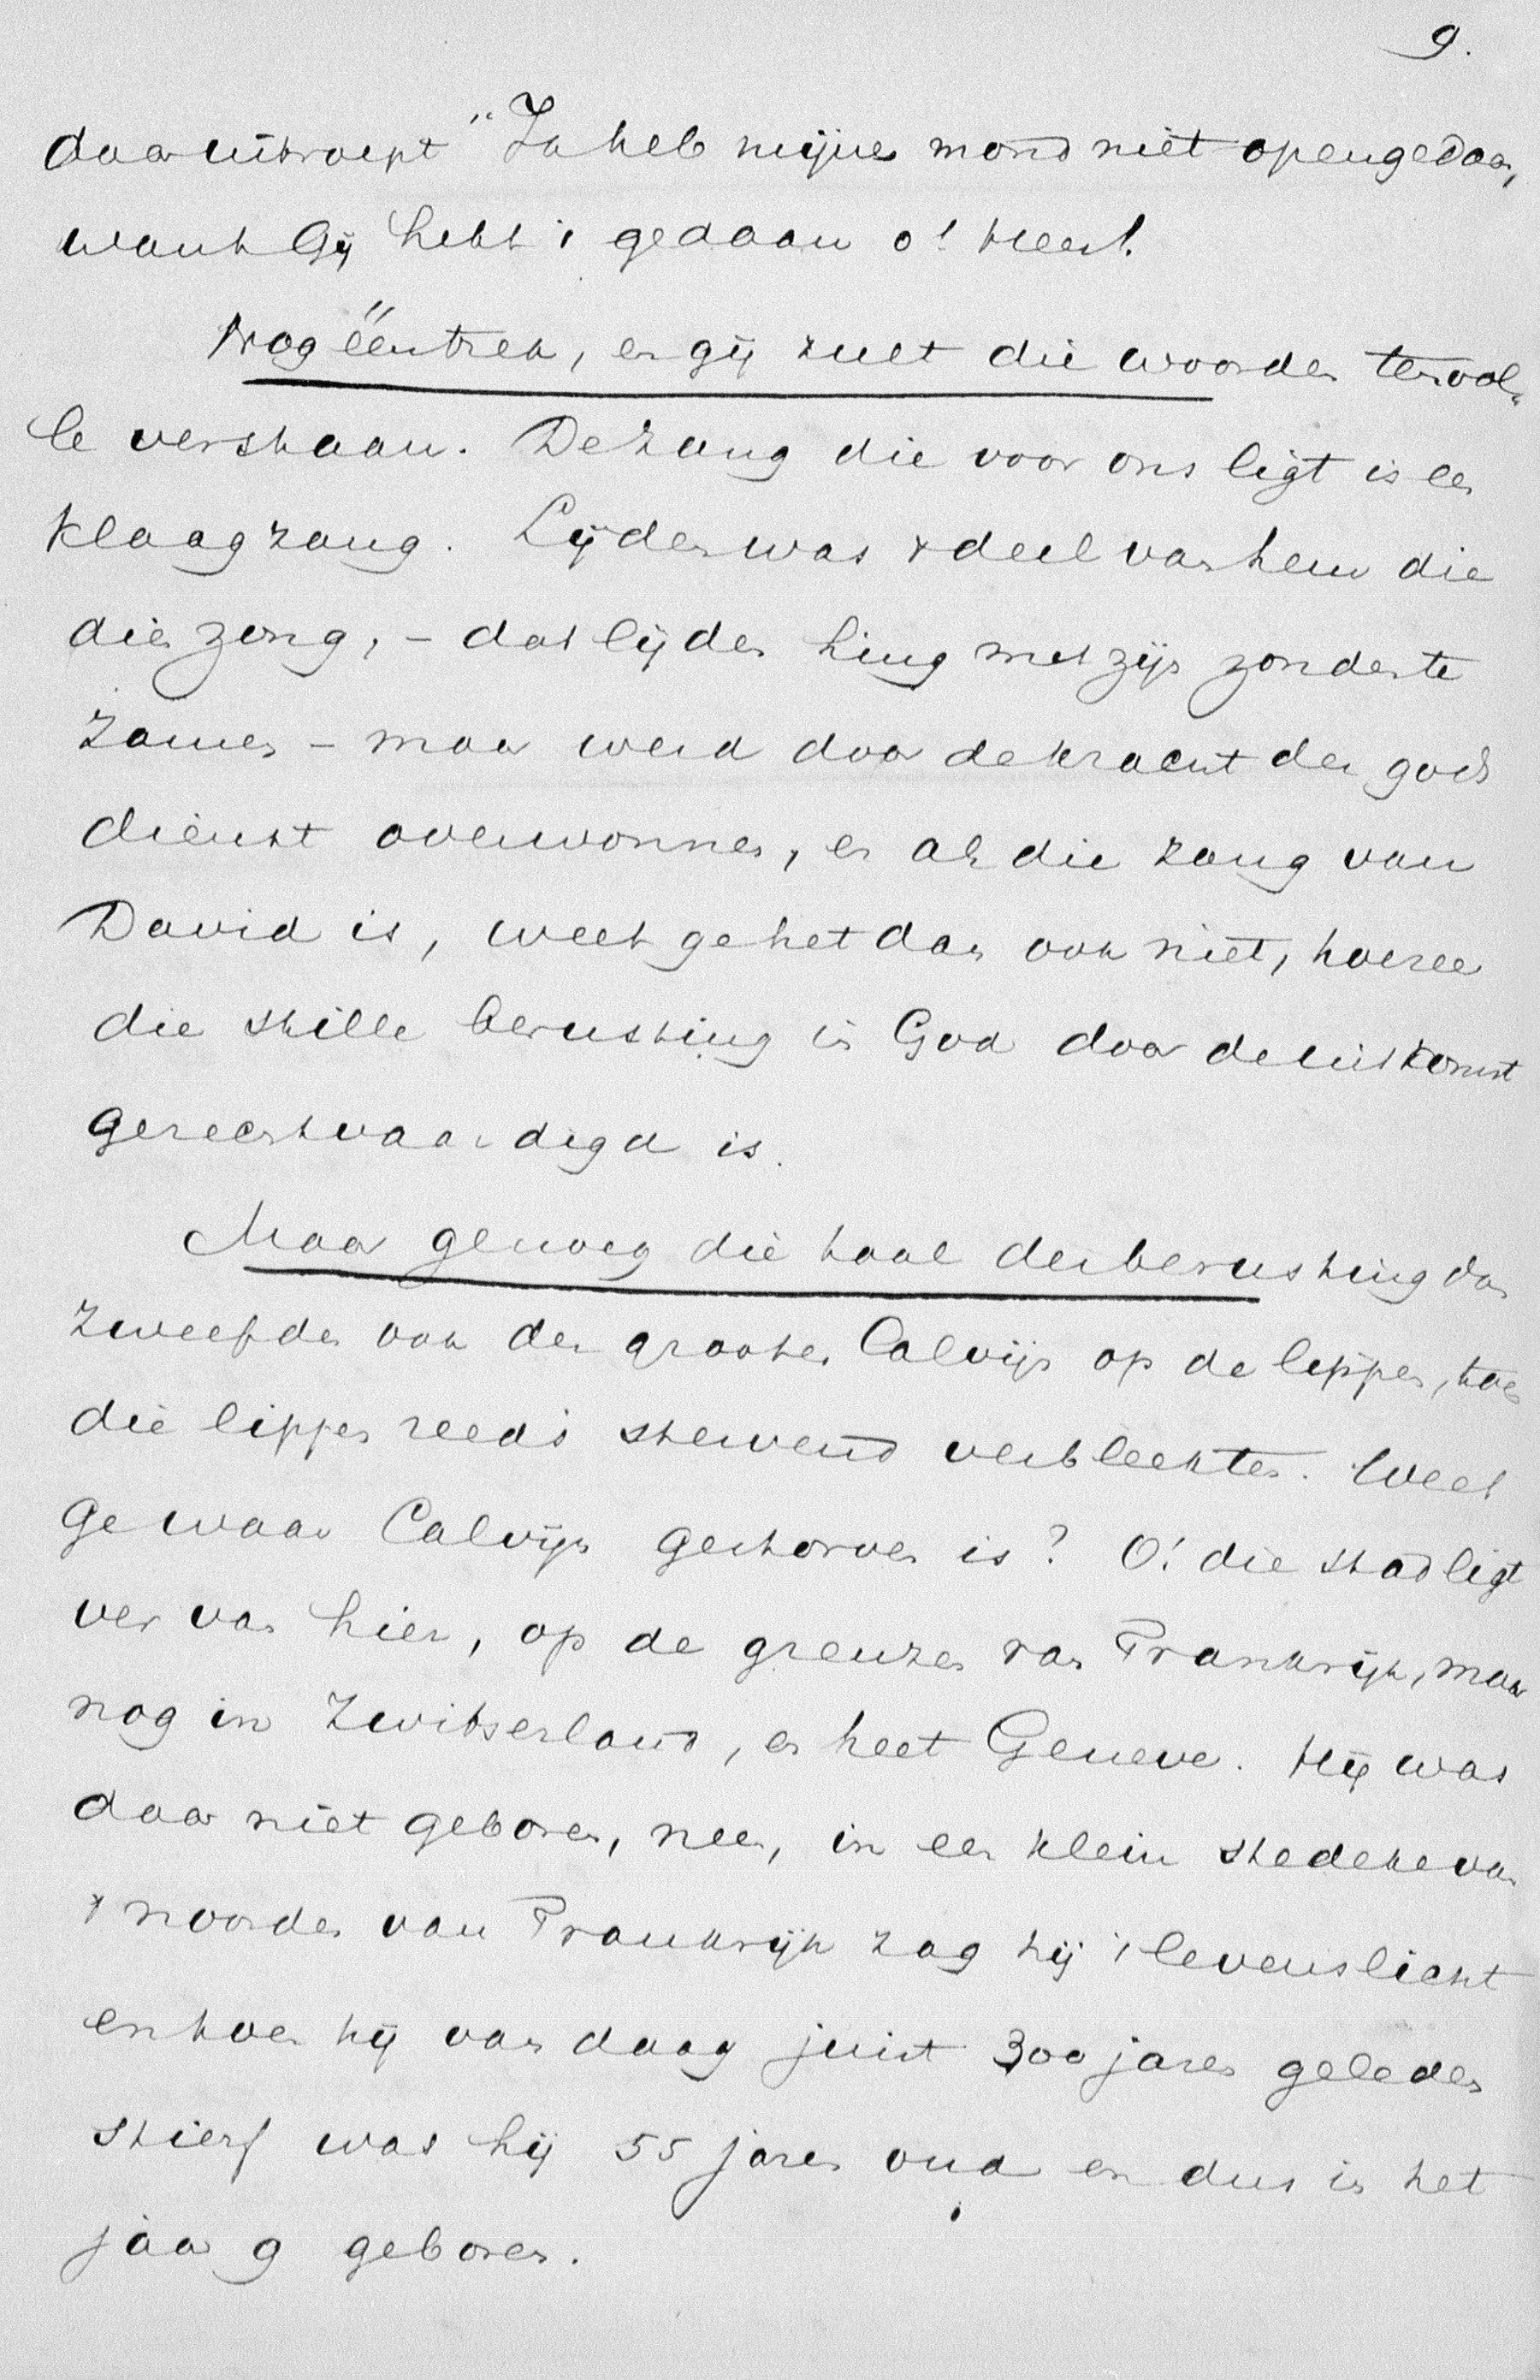 9.
daar uitroept "Ik heb mijnen mond niet opengedaan,
want Gij hebt 't gedaan o! Heer!.
Nog één trek, en gij zult die woorden tenvol-
le verstaan. De zang die voor ons ligt is een
klaagzang. Lijden was 't deel van hem die
dien zong, - dat lijden hing met zijn zonden te
zamen - maar werd door de kracht der gods
dienst overwonnen, en als die zang van
David is, weet ge het dan ook niet, hoezeer
die stille berusting in God door de uitkomst
gerechtvaardigd is.
Maar genoeg die taal der berusting dan
zweefden ook den grooten Calvijn op de lippen, toen
die lippen reeds stervend verbleekten. Weet
ge waar Calvijn gestorven is? O! die stad ligt
ver van hier, op de grenzen van Frankrijk, maar
nog in Zwitserland, en heet Geneve. Hij was
daar niet geboren, neen, in een klein stedeke van
't noorden van Frankrijk zag hij 't levenslicht
en toen hij van daag juist 300 jaren geleden
stierf was hij 55 jaren oud en dus in het
jaar 9 geboren.